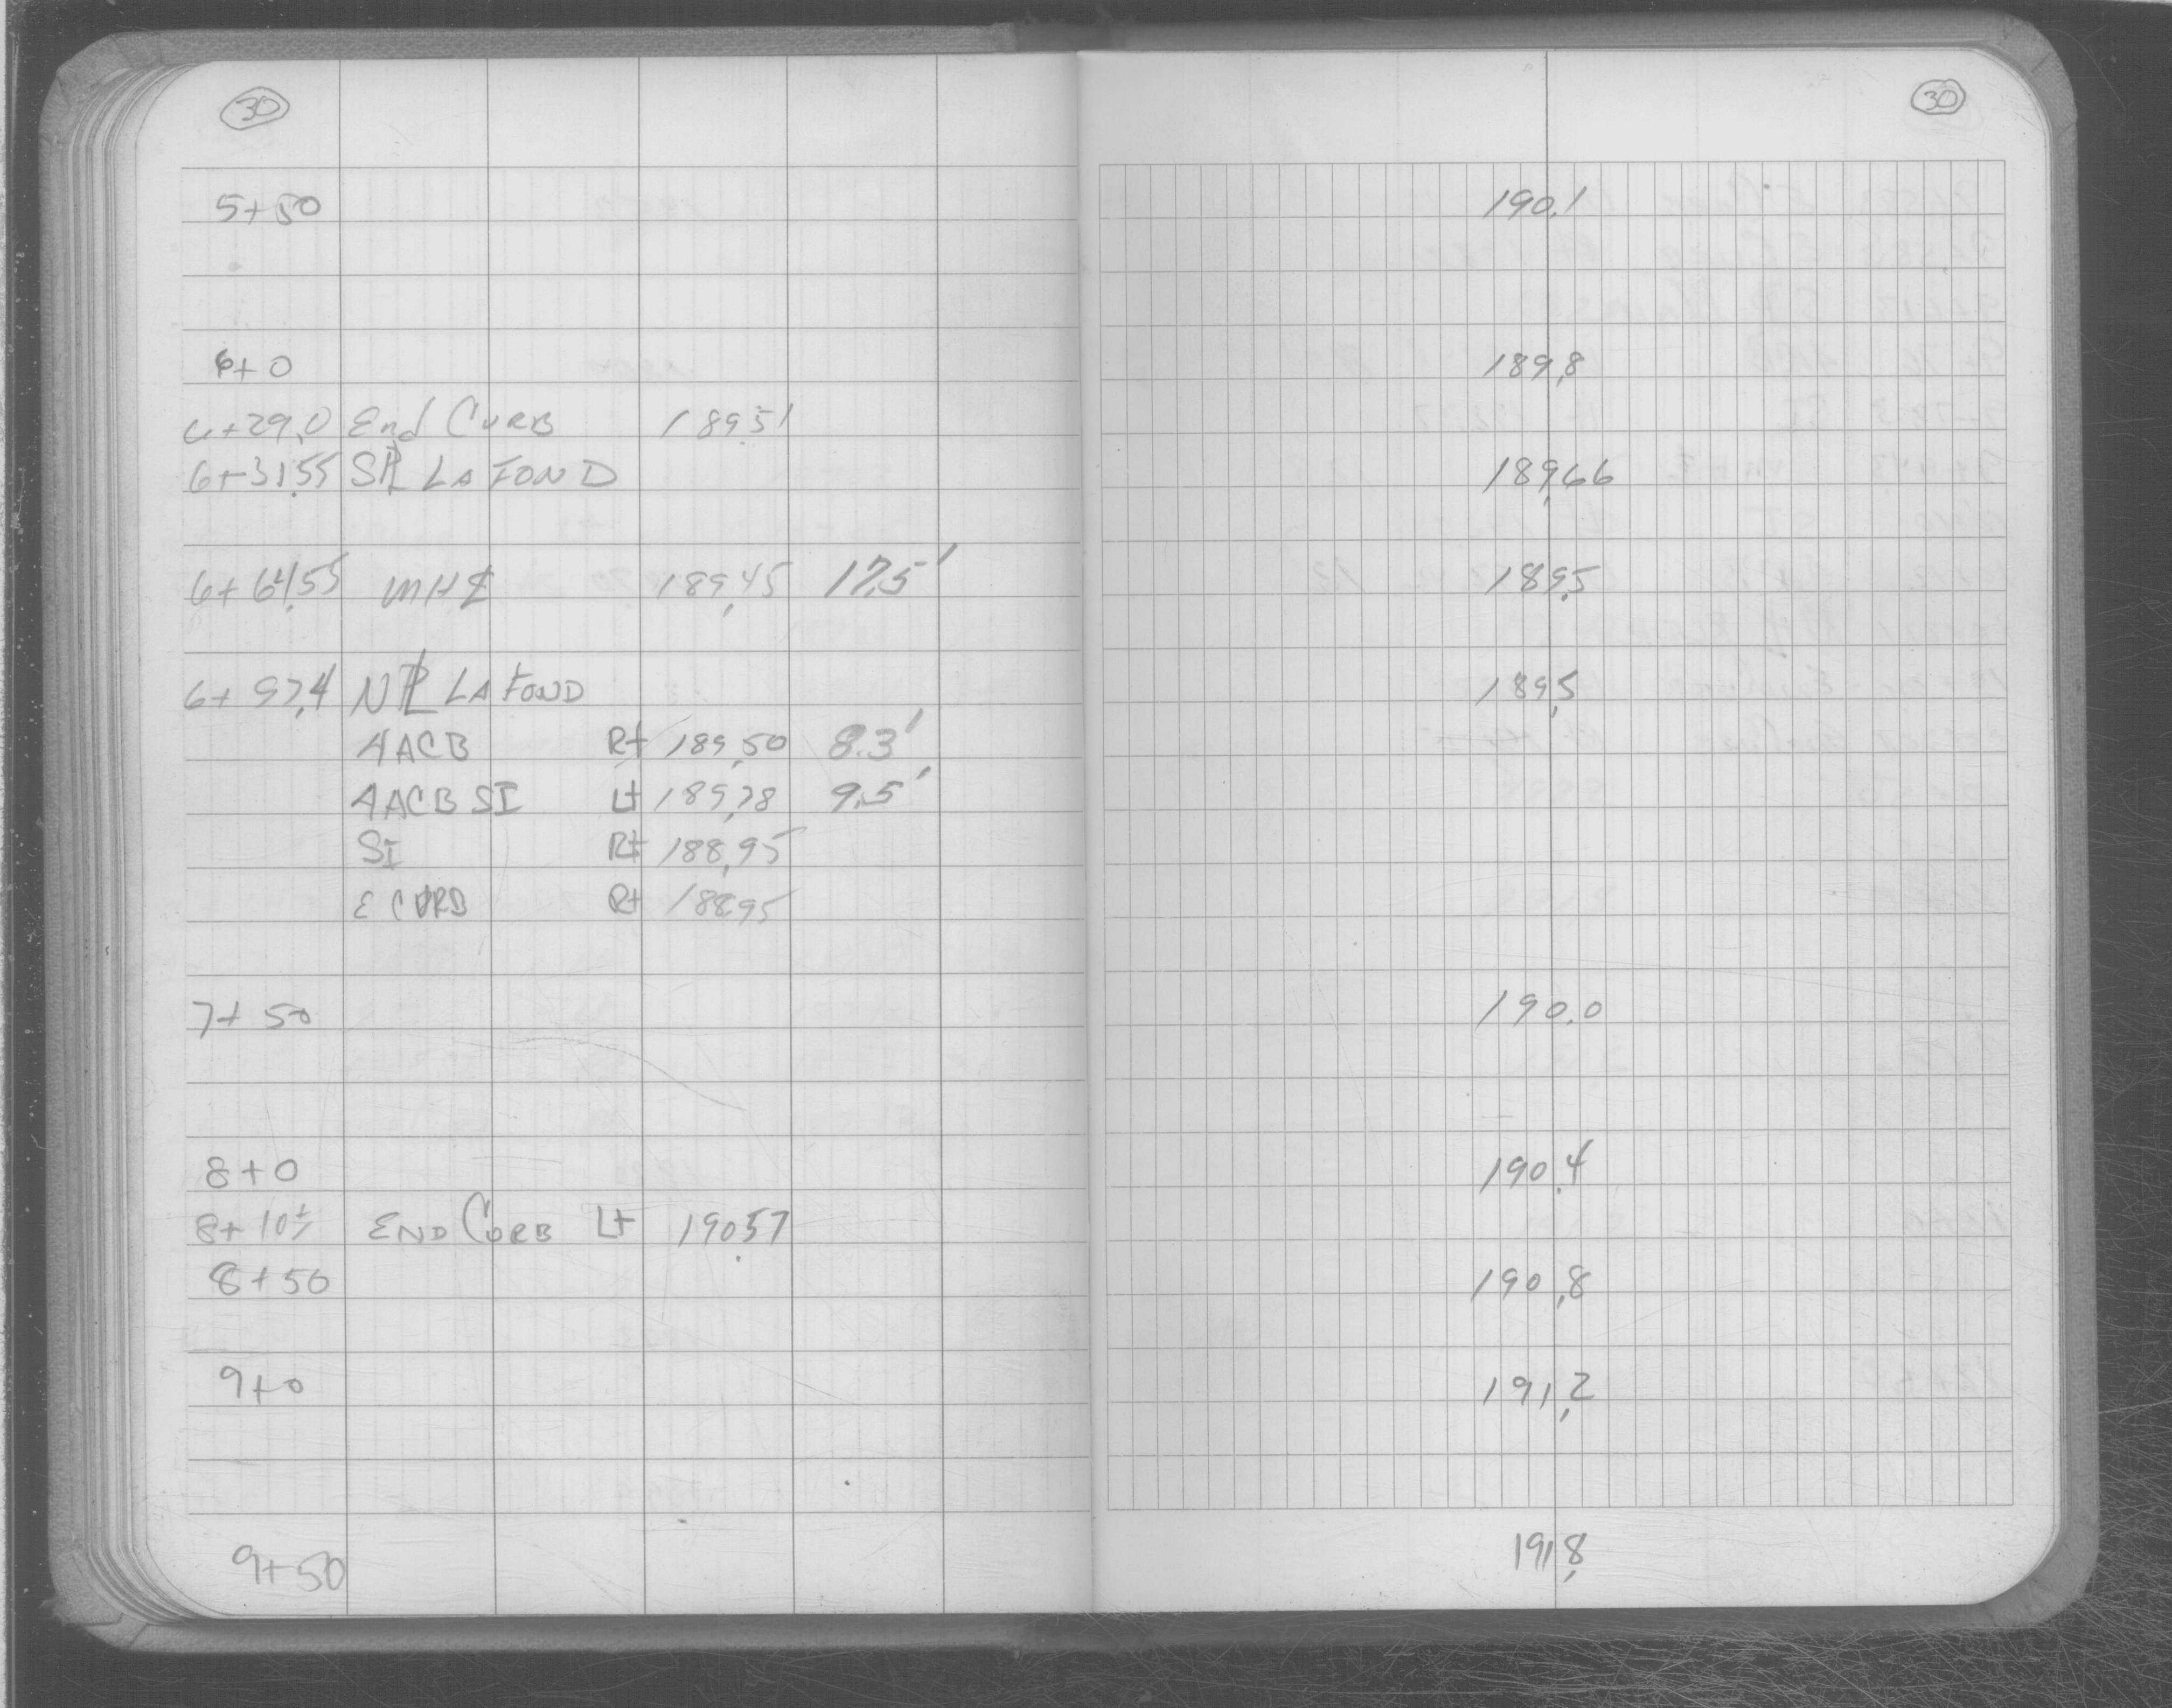 30 30
5+50 190.1
6+0 189.8
6+29.0 End Curb 189.51
6+31.55 S℄ LAFOND 189.66
6+64.55 MH ℄ 189.45 17.5' 189.5
6+97.4 N℄ LAFOND 189.5
AACB Rt 189.50 8.3'
AACB SI Lt 189.78 9.5'
SI Rt 188.95
E CURB Rt 188.95
7+50 190.0
8+0 190.4
8+10± END CURB Lt 190.57
8+50 190.8
9+0 191.2
9+50 191.8